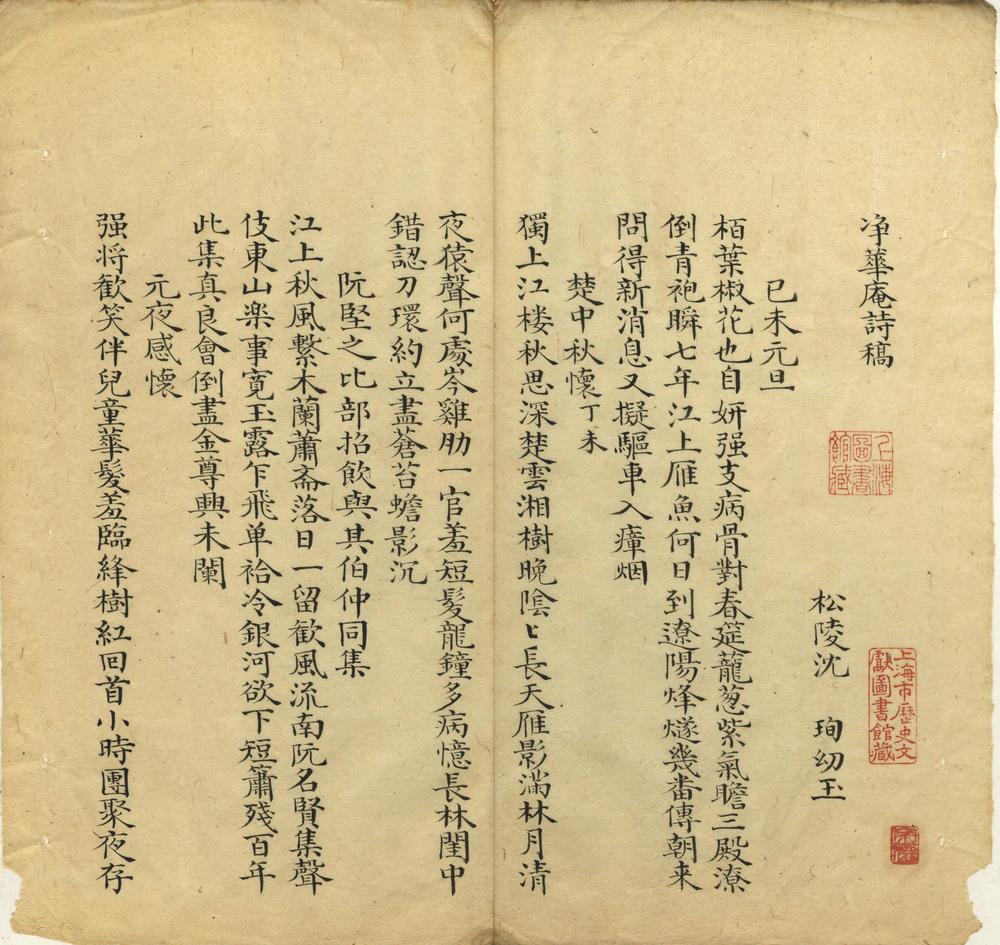 净華庵詩稿
松陵沈 珣幼玉
己未元旦
栢葉椒花也自妍强支病骨對春筵蘢葱紫氣瞻三殿潦
倒青袍瞬七年江上雁魚何日到遼陽烽燧幾畨傳朝来
問得新消息又擬驅車入瘴烟
楚中秋懷丁未
獨上江楼秋思深楚雲湘樹晚陰〻長天雁影滿林月清
夜猿聲何處岑雞肋一官羞短髮龍鐘多病憶長林閨中
錯認刀環約立盡蒼苔蟾影沉
阮堅之比部招飲與其伯仲同集
江上秋風繫木蘭蕭斋落日一留歡風流南阮名賢集聲
伎東山楽事寬玉露乍飛单袷冷銀河欲下短簫殘百年
此集真良會倒盡金尊興未闌
元夜感懷
强将歡笑伴兒童華髮羞臨絳樹紅回首小時團聚夜存
上海圖書館藏
上海市歷史文獻圖書館藏